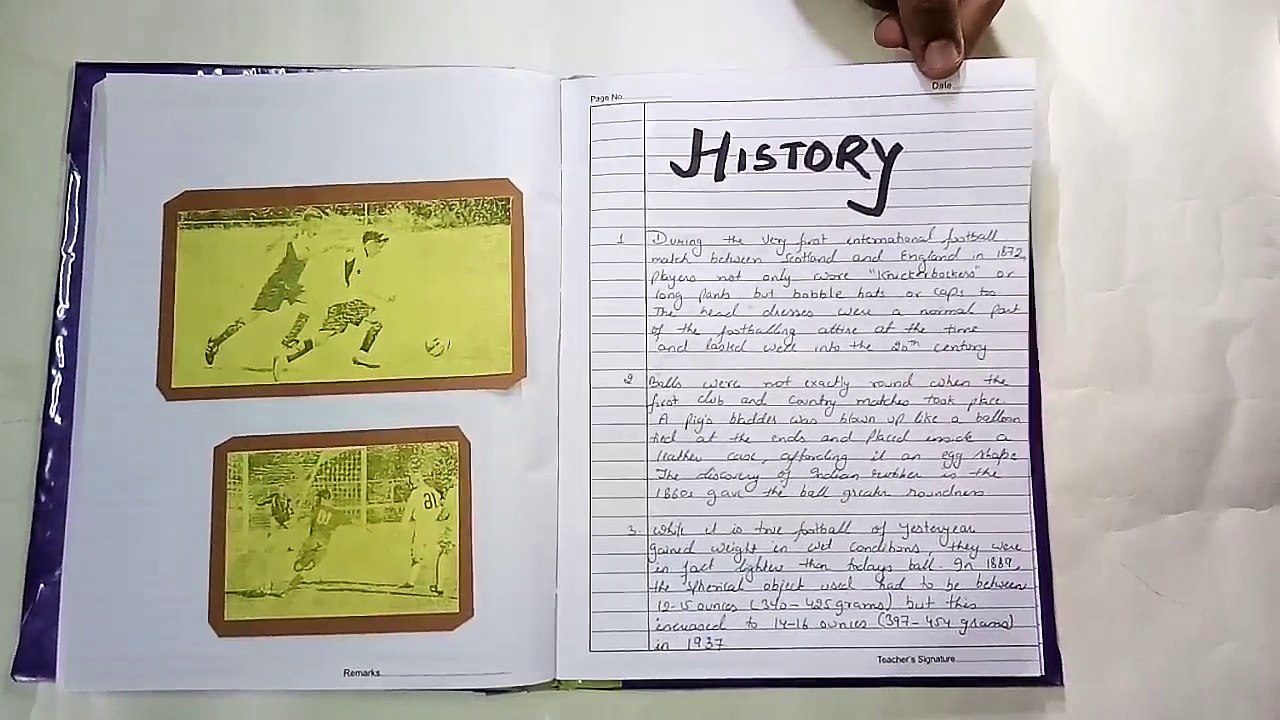 Page No
Date
HISTORY
1 During the very first international football
match between Scotland and England in 1872,
players not only wore "Knickerbockers" or
long pants but bobble hats or caps too
The head dresses were a normal part
of the footballing attire at the time
and lasted well into the 20th century
2 Balls were not exactly round when the
first club and country matches took place
A pig's bladder was blown up like a balloon
tied at the ends and placed inside a
leather case, affording it an egg shape
The discovery of Indian rubber in the
1860s gave the ball greater roundness.
3. While it is true football of yesteryear
gained weight in wet conditions, they were
in fact lighter than todays ball. In 1889,
the spherical object used had to be between
12-15 ounces (340-425 grams) but this
increased to 14-16 ounces (397-454 grams)
in 1937
Teacher's Signature
Remarks
21